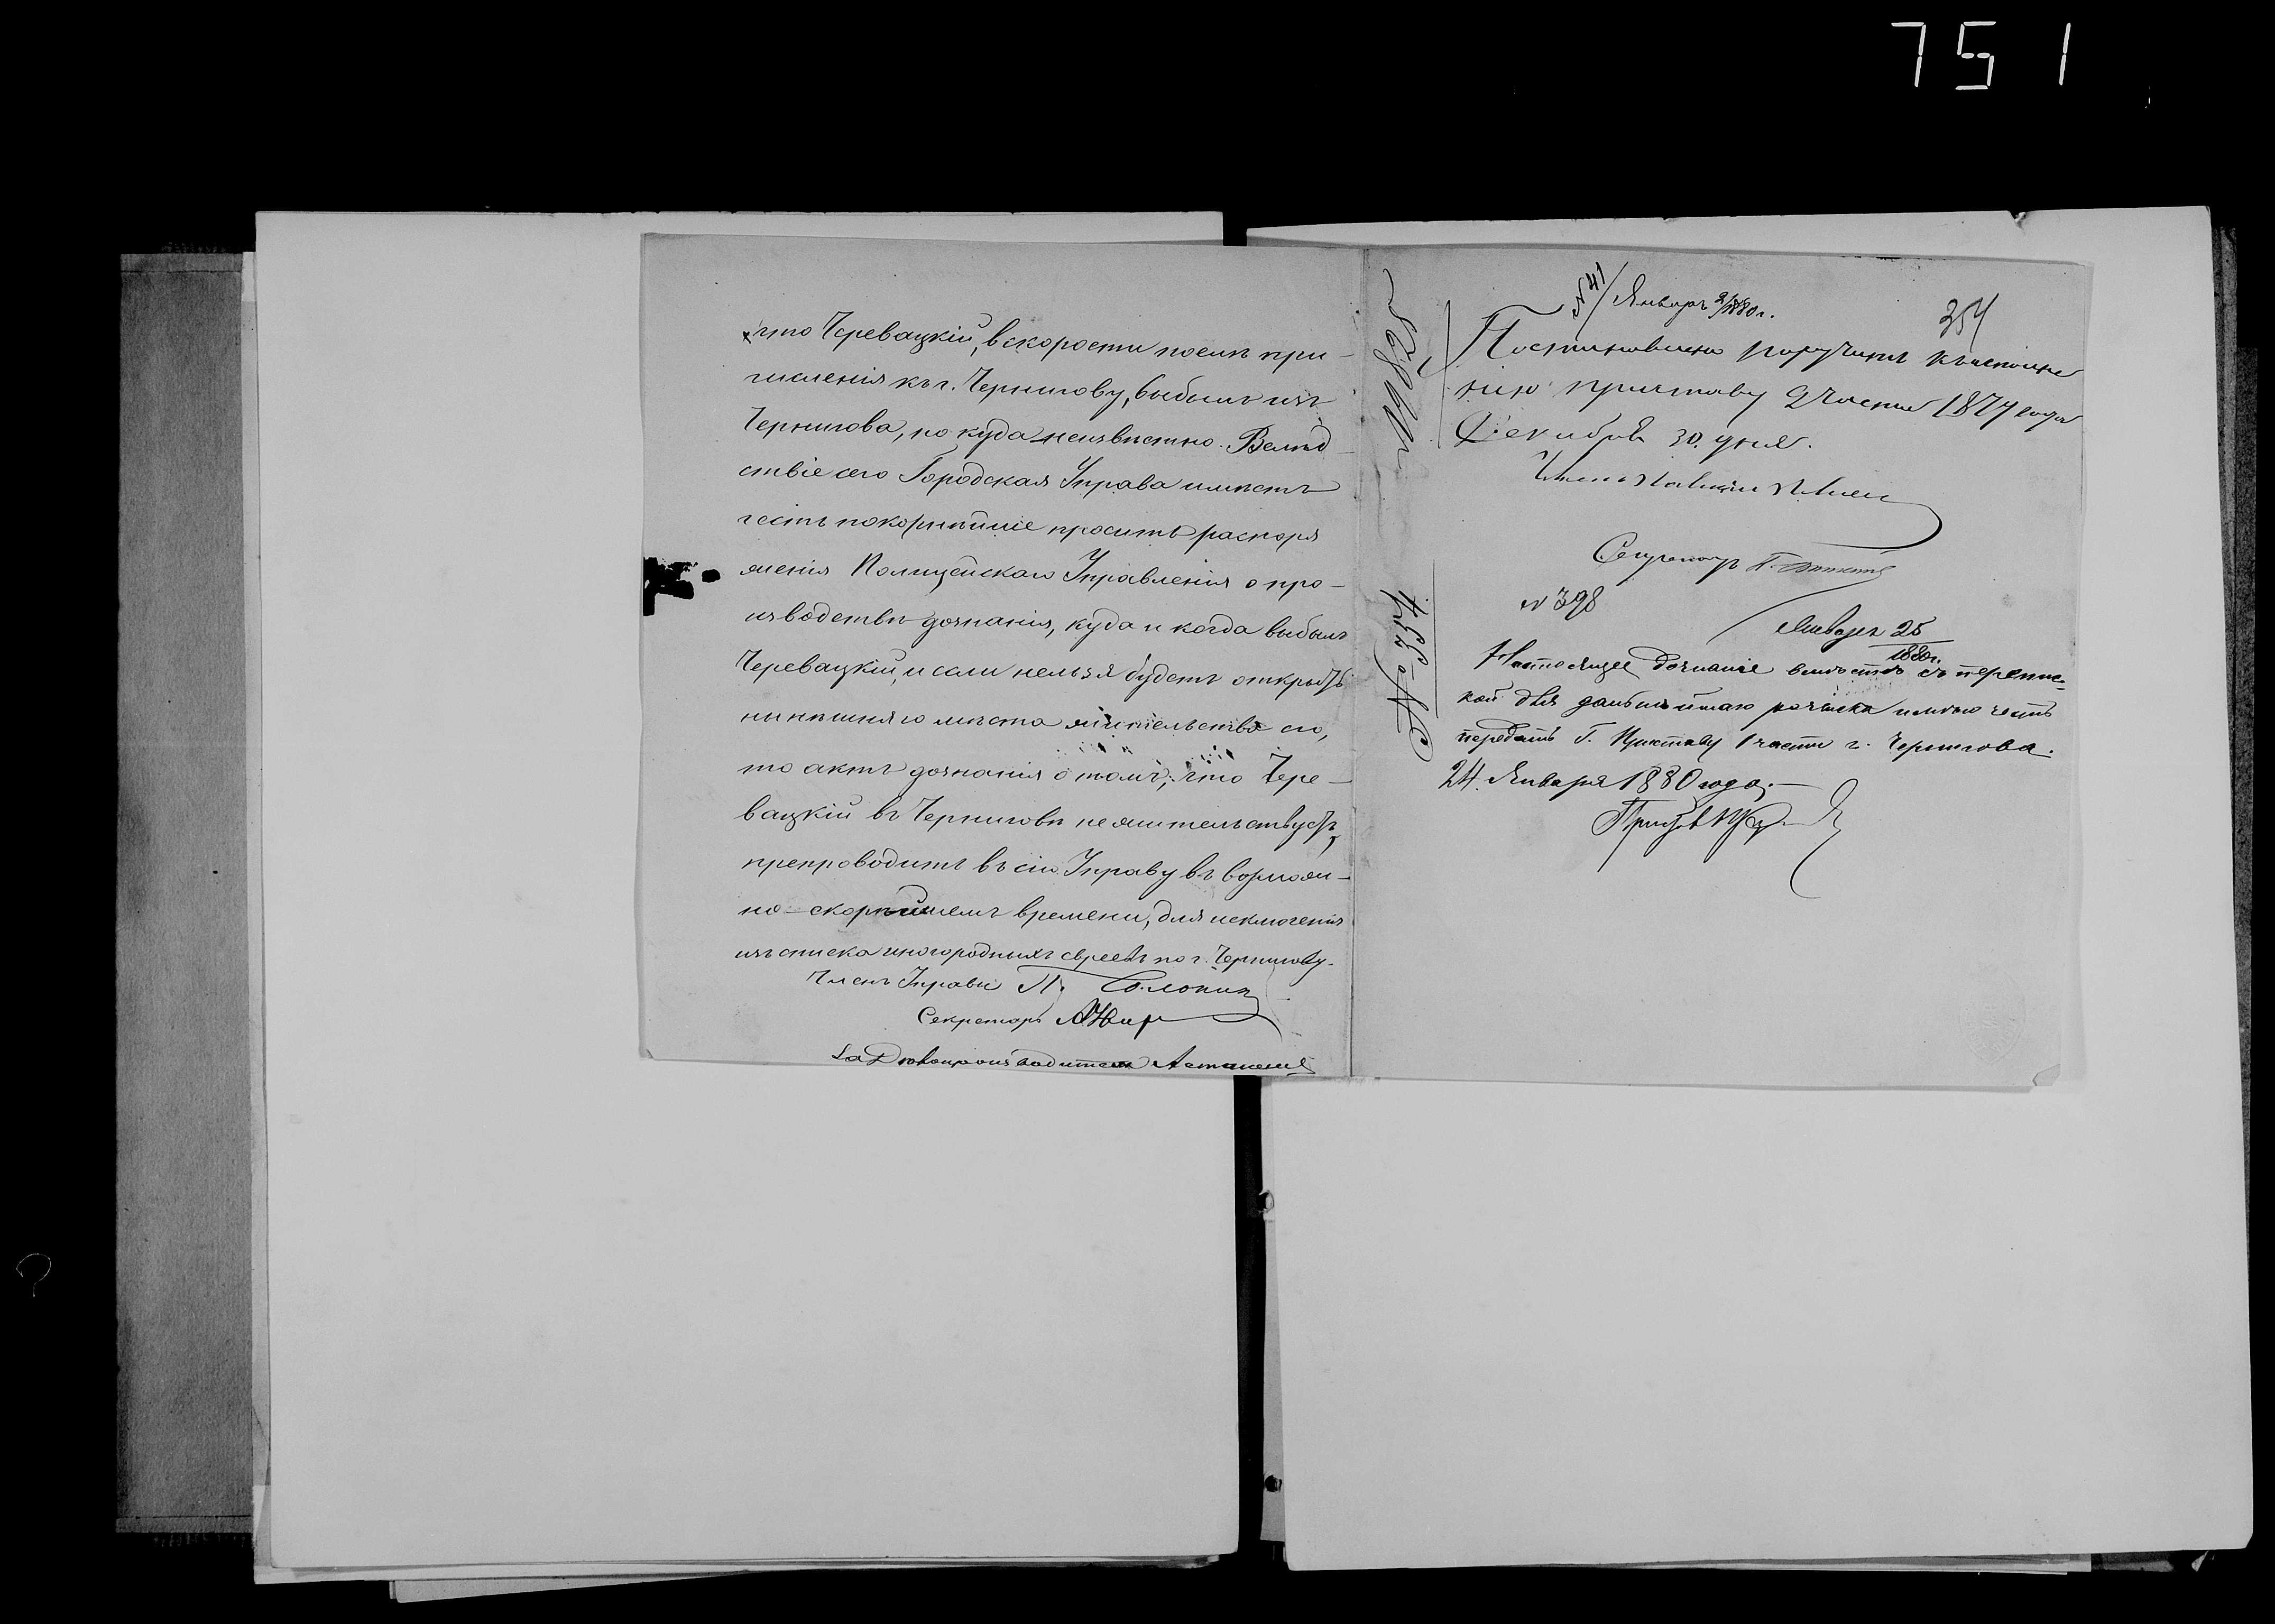 751
что Черевацкій, вскорости послѣ при-
численія къ г. Чернигову, выбылъ изъ
Чернигова, но куда неизвѣстно. Вслѣд-
ствіе сего Городская Управа имѣетъ
честь покорнѣйше просить распоря
женія Полицейскаго Управленія о про-
изводствѣ дознанія, куда и когда выбылъ
Черевацкій, и если нельзя будетъ открыть
нынѣшняго мѣста жительства его,
то актъ дознанія о томъ, что Чере-
вацкій въ Черниговѣ не жительствуетъ,
препроводить въ сію Управу въ возмож-
но-скорѣйшемъ времени, для исключенія
изъ списка иногородныхъ евреевъ по г. Чернигову.
Членъ Управы П.
Секретарь
За Дѣлопроизводителя
№ 41 / Январь 9/1880 г.
354
Постановлено поручить къ исполне
нію приставу 2 части 187 года
Декабря 30 дня.
Секретарь
№ 398
Январь 25
1880 г.
Настоящее дознаніе вмѣстѣ съ перепис-
кой для дальнѣйшаго розыска имѣю честь
передать Г. Приставу 1 части г. Чернигова.
24 Января 1880 года.
Приставъ